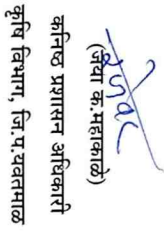 (जया क.महाकाळे)
कनिष्ठ प्रशासन अधिकारी
कृषि विभाग, जि.प.यवतमाळ